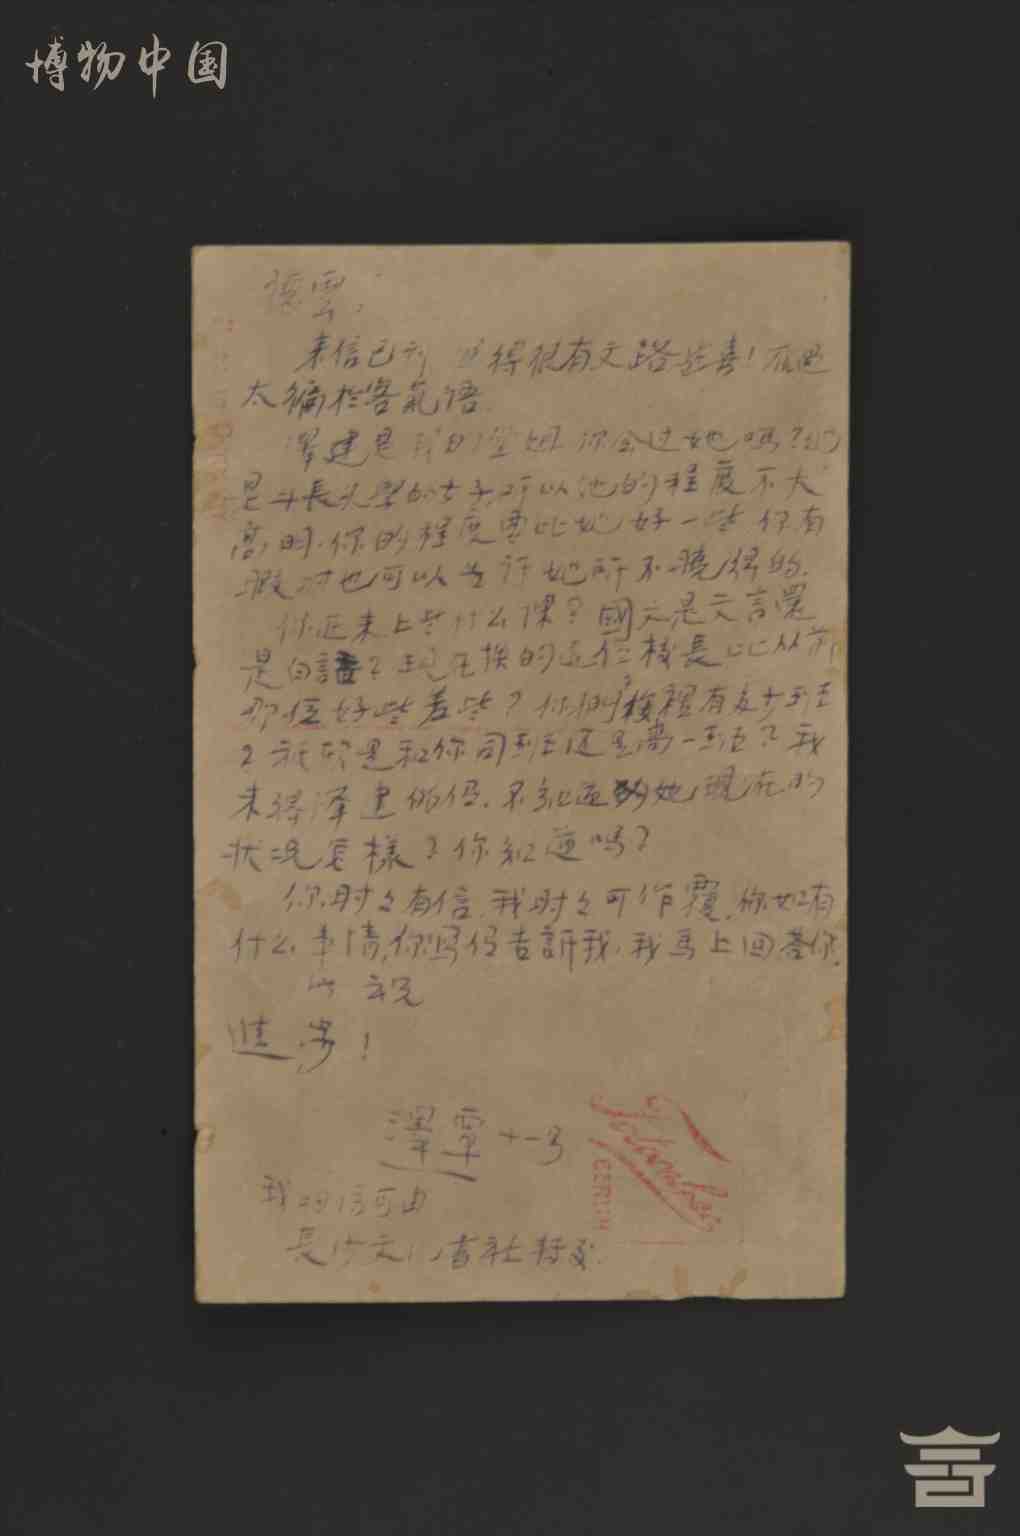 博物中国
德雲：
来信已到 得很有文路 甚喜！不过
太偏於客氣语。
澤建是我的堂妹 你会过她吗？她
是 長大 的女子，所以他的程度不大
高明．你的程度要比她好一些 你有
暇时也可以告诉她所不曉得的．
你近来上些什么课？國文是文言還
是白話？现在换的这位校長比从前
那位好些差些？你们校裡有多少班
？ 是和你同班还是高一班？我
未得澤建的信．不知道她现在的
状况怎樣？你知道吗？
你时々有信，我时々可作覆．你如有
什么事情，你写信告訴我，我馬上回答你．
此祝
進步！
澤覃 十一号
我的信可由
長沙文化書社转交．
BERLIN